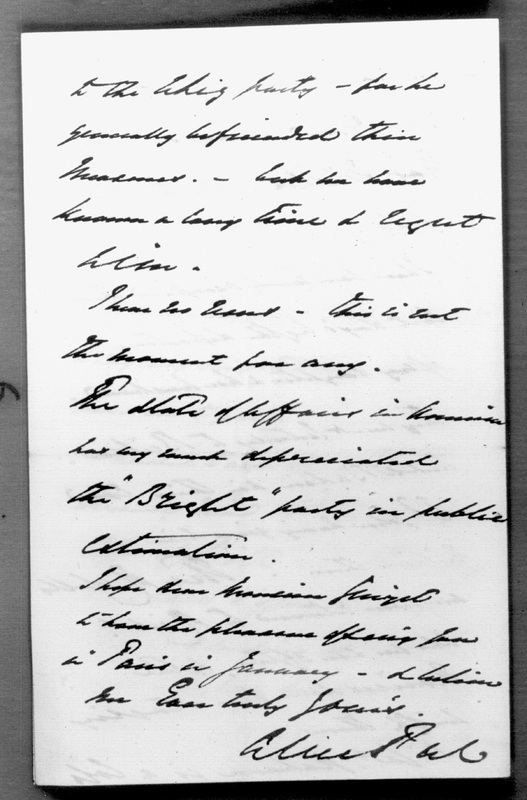 to the Whig party – for he
generally befriended their
Measures. – but we have
known a long time to regret
him.
I have no news – this is not
the moment for any.
The State of Affairs in America
has very much depreciated
the "Bright" party in public
estimation.
I hope dear Monsieur Guizot
to have the pleasure of seeing you
in Paris in January – & believe
me Ever truly Yours.
Alice Peel